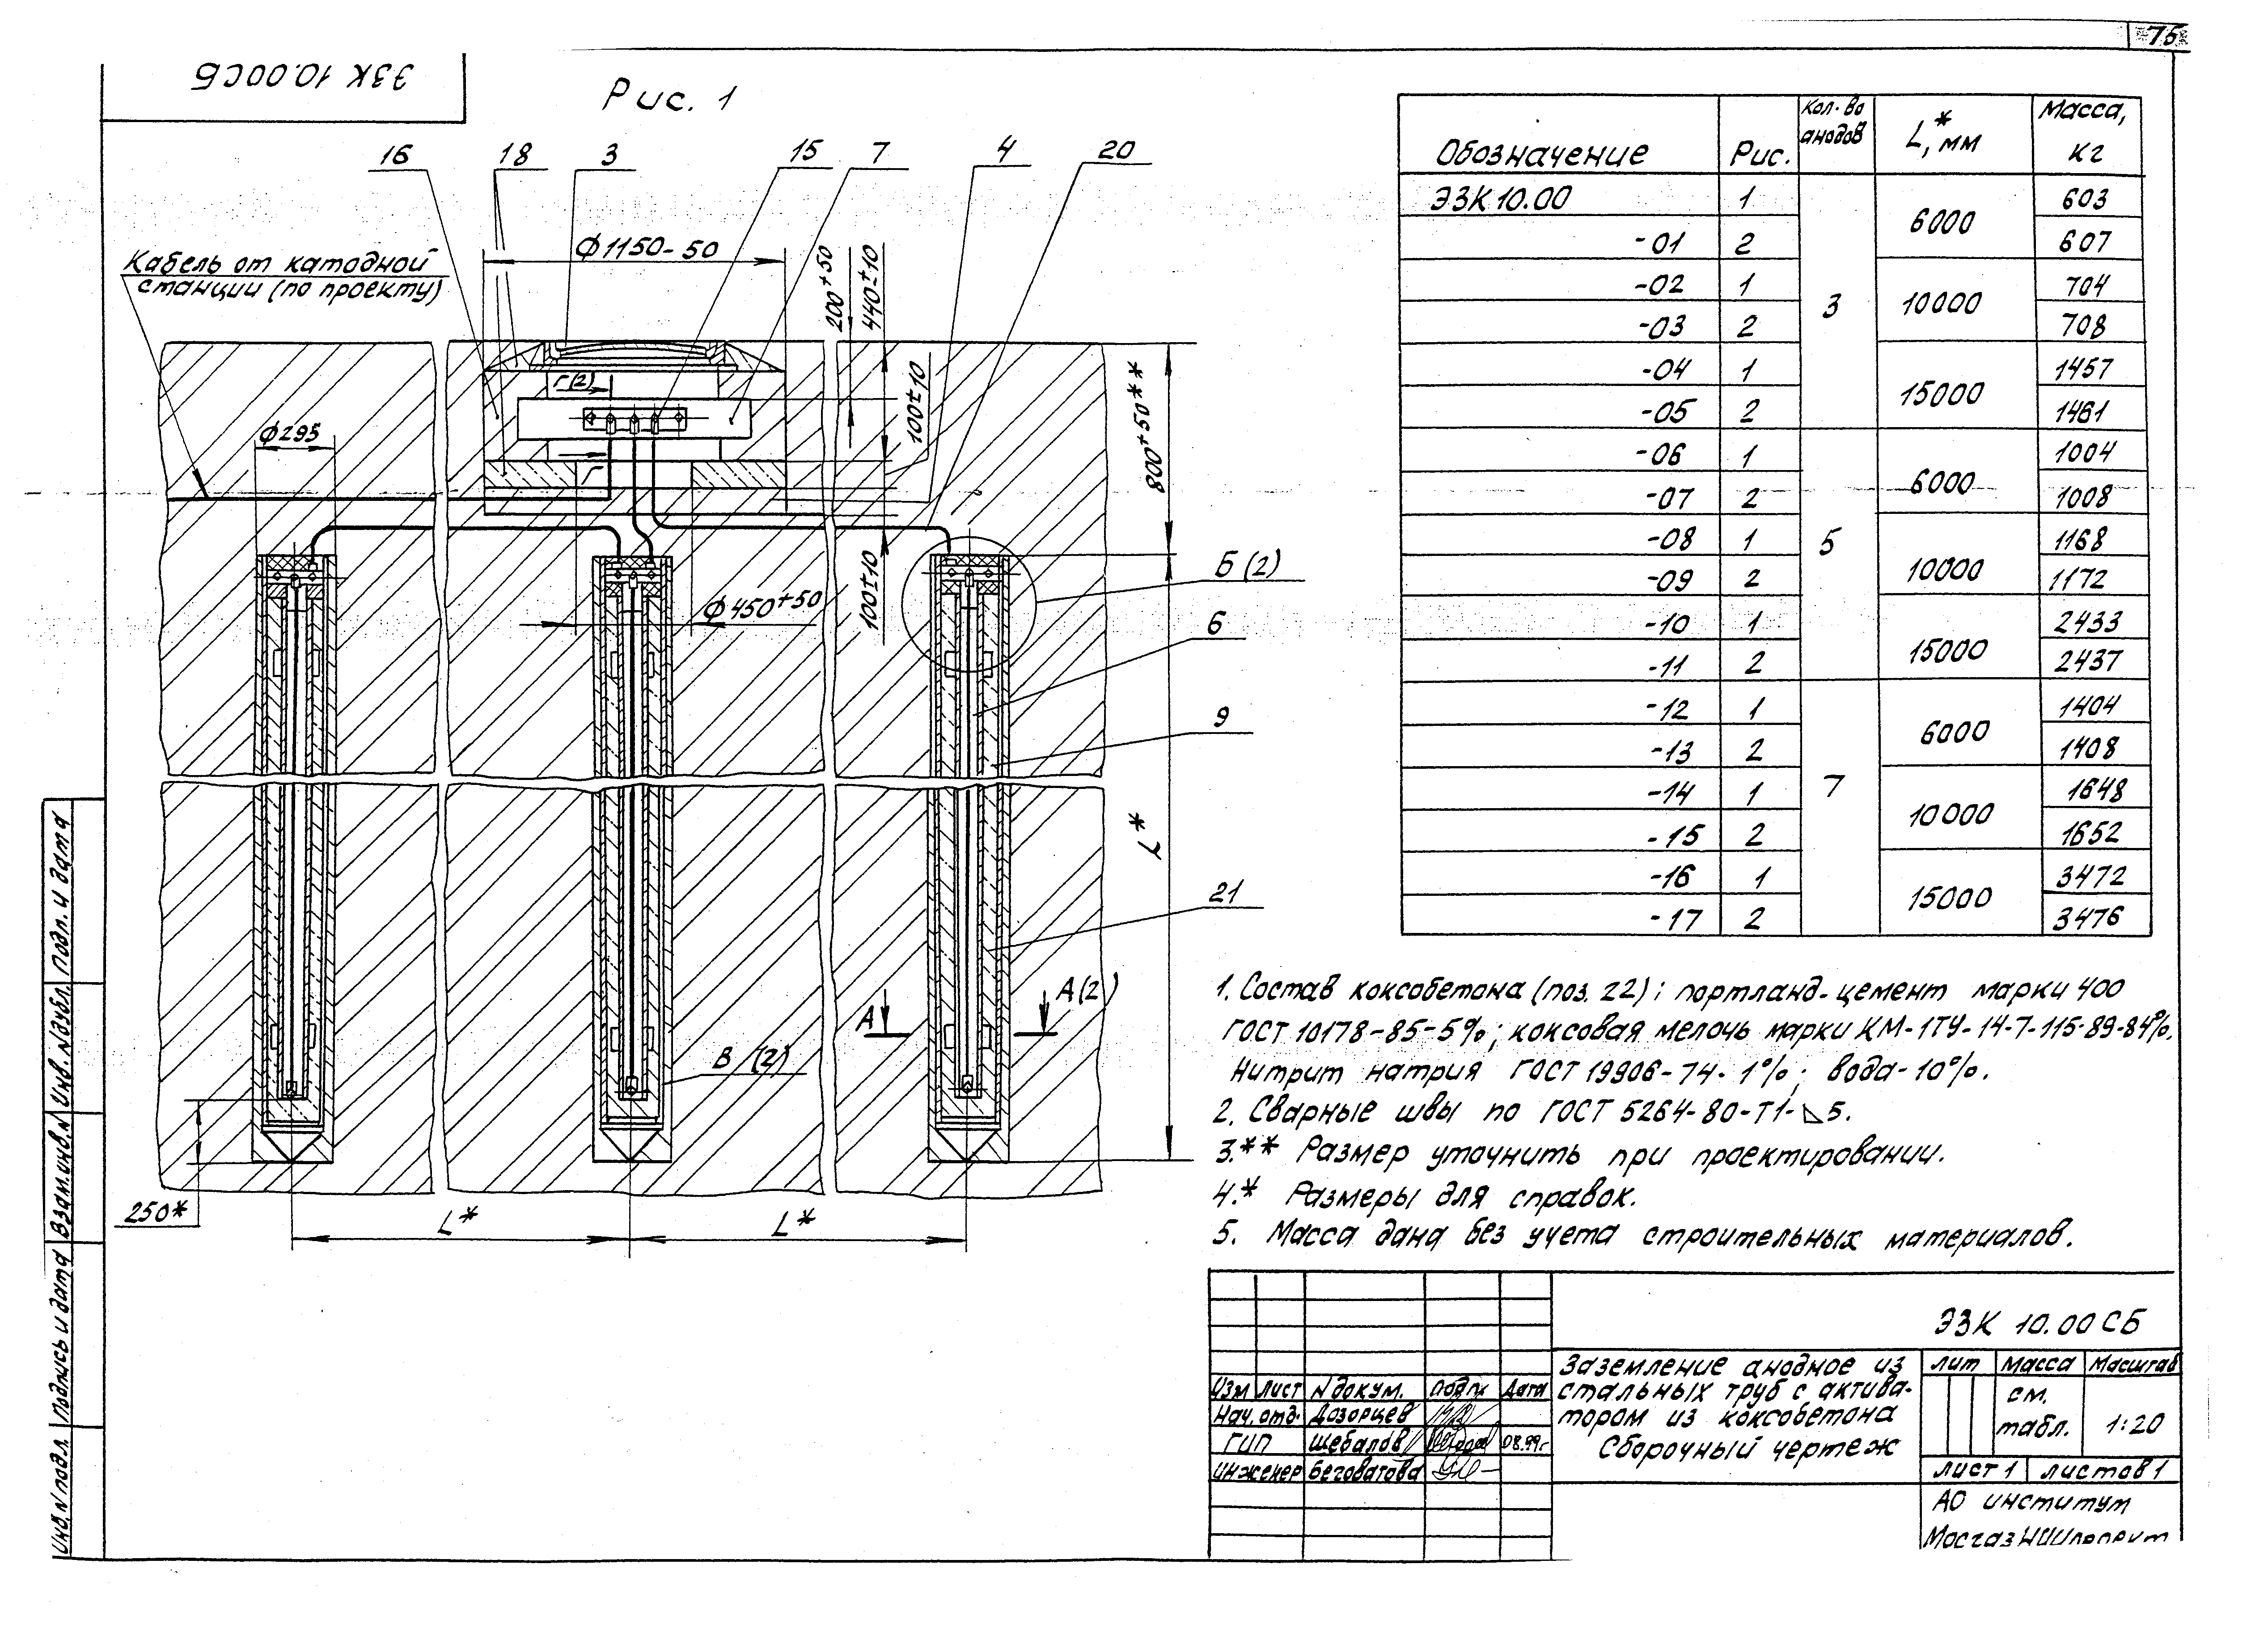 75
ЭЗК 10.00СБ
Рис. 1
16
18
3
15
7
4
20
Кабель от катодной
станции (по проекту)
ф1150-50
200+50
440±10
100±10
800+50**
ф295
Г(2)
Г
100±10
ф450+50
Б(2)
6
9
L*
21
А
А(2)
В (2)
250*
L*
L*
Обозначение Рис. Кол-во анодов L*, мм Масса, кг
ЭЗК 10.00 1 3 6000 603
-01 2 607
-02 1 10000 704
-03 2 708
-04 1 15000 1457
-05 2 1461
-06 1 5 6000 1004
-07 2 1008
-08 1 10000 1168
-09 2 1172
-10 1 15000 2433
-11 2 2437
-12 1 7 6000 1404
-13 2 1408
-14 1 10000 1648
-15 2 1652
-16 1 15000 3472
-17 2 3476
1. Состав коксобетона (поз. 22): портланд-цемент марки 400
ГОСТ 10178-85-5%; коксовая мелочь марки КМ-1ТУ-14-7-115-89-84%.
Нитрит натрия ГОСТ 19906-74-1%; вода-10%.
2. Сварные швы по ГОСТ 5264-80-Т1-⊿5.
3.** Размер уточнить при проектировании.
4.* Размеры для справок.
5. Масса дана без учета строительных материалов.
ЭЗК 10.00СБ
Заземление анодное из
стальных труб с актива-
тором из коксобетона
Сборочный чертеж
Лит Масса Масштаб
см.
табл.
1:20
Лист 1 Листов 1
АО институт
МосгазНИИпроект
Изм Лист N докум. Подп. Дата
Нач. отд. Дозорцев
ГИП Шебалов 08.99г
Инженер Беговатова
Инв. N подл. Подпись и дата Взам. инв. N Инв. N дубл. Подп. и дата